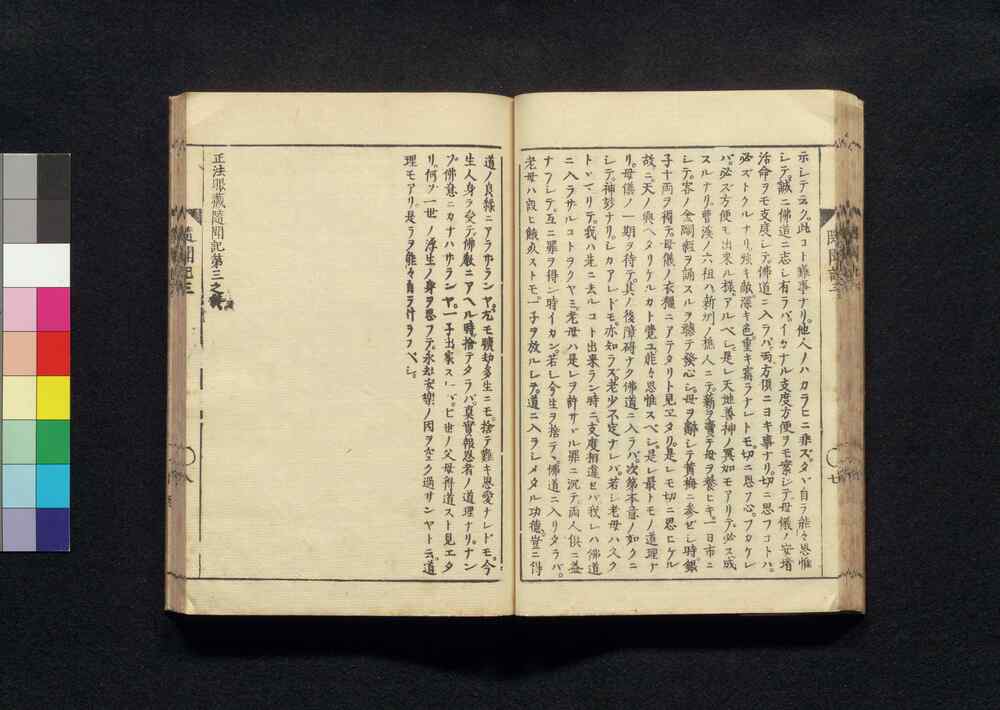 示シテ云ク此コト難事ナリ。他人ノハカラヒニ非ズ。タヾ自ラ能々思惟
シテ。誠ニ佛道ニ志シ有ラバ。イカナル支度方便ヲモ案シテ母儀ノ安堵
活命ヲモ支度シテ佛道ニ入ラバ。両方倶ニヨキ事ナリ。切ニ思フコトハ。
必ズトクルナリ。強キ敵深キ色重キ寳ラナレトモ。切ニ思フ心フカケレ
バ。必ズ方便モ出來ル様アルベシ。是レ天地善神ノ冥加モアリテ必ス成
スルナリ。曹溪ノ六祖ハ新州ノ樵人ニテ。薪ヲ賣テ母ヲ養ヒキ。一日市ニ
シテ。客ノ金剛經ヲ誦スルヲ聽テ發心シ。母ヲ辭シテ黄梅ニ參ゼシ時銀
子十両ヲ得テ。母儀ノ衣糧ニアテタリト見ヱタリ。是レモ切ニ思ヒケル
故ニ。天ノ與ヘタリケルカト覺ユ。能々思惟スベシ。是レ最トモノ道理ナ
リ。母儀ノ一期ヲ待テ。其ノ後障碍ナク佛道ニ入ラバ。次第本意ノ如クニ
シテ。神妙ナリ。シカアレドモ亦知ラズ。老少不定ナレバ。若シ老母ハ久ク
トヾマリテ。我ハ先ニ去ルコト出來ラン時ニ。支度相違セバ。我レハ佛道
ニ入ラザルコトヲクヤミ。老母ハ是レヲ許サヾル罪ニ沉テ。両人倶ニ益
ナフシテ。互ニ罪ヲ得ン時イカン。若シ今生ヲ捨テヽ佛道ニ入リタラバ。
老母ハ設ヒ餓死ストモ。一子ヲ放ルシテ。道ニ入ラシメタル功德。豈ニ得
道ノ良縁ニアラザランヤ。尤モ曠劫多生ニモ。捨テ難キ恩愛ナレドモ。今
生人身ヲ受テ。佛教ニアヘル時。捨テタラバ。眞實報恩者ノ道理ナリ。ナン
ゾ佛意ニカナハザランヤ。一子出家スレバ。七世ノ父母得道スト見エタ
リ。何ゾ一世ノ浮生ノ身ヲ思フテ。永劫安樂ノ因ヲ空ク過サンヤト云道
理モアリ。是ラヲ能々自ラ計ラフベシ。
正法眼藏隨聞記第三之終
隨聞記三
八
隨聞記三
七